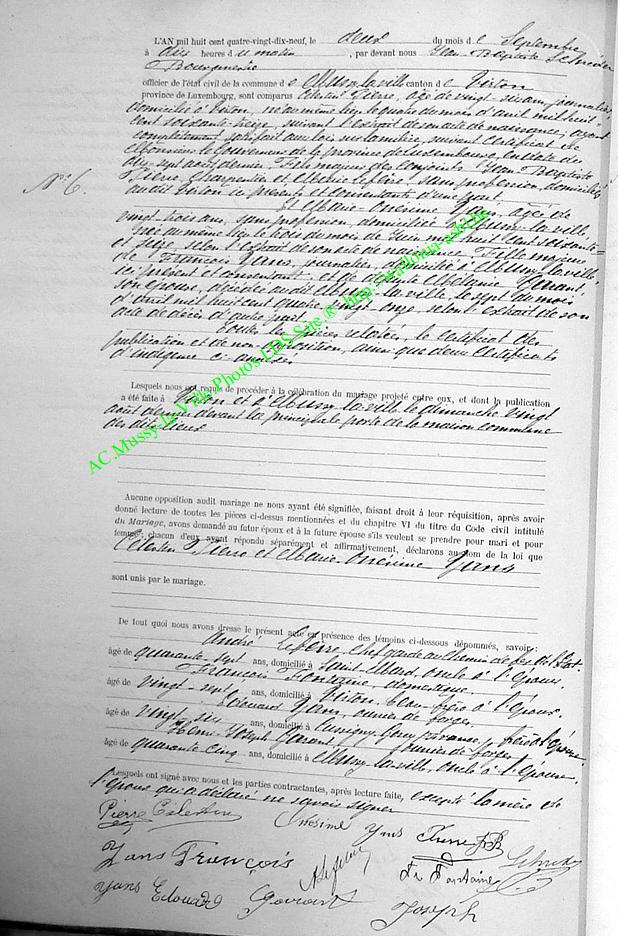 L'AN mil huit cent quatre-vingt-dix-neuf, le deux du mois de Septembre
à dix heures du matin, par devant nous Jean-Baptiste
Bourgmestre
officier de l'état civil de la commune de Mussy-la-ville canton de Virton
province de Luxembourg, sont comparus Célestin Pierre, âgé de vingt-six ans, journalier,
domicilié à Virton, né au même lieu le quatre du mois d'avril mil huit
cent soixante-treize, suivant l'extrait de son acte de naissance, ayant
complètement satisfait aux lois sur la milice, suivant certificat de
le Gouverneur de la province de Luxembourg, en date du
dix-sept août dernier. Fils majeur des conjoints Jean Baptiste
N° 6.
Pierre, Charpentier et Marie Lefèvre, sans profession, domiciliés
audit Virton ici présents et consentants d'une part
Et Marie-Onésime Yans, âgée de
vingt-trois ans, sans profession, domiciliée à Mussy-la-ville,
née au même lieu le trois du mois de Juin mil huit cent soixante-
et seize, selon l'extrait de son acte de naissance. Fille majeure
de François Yans, journalier, domicilié à Mussy-la-ville,
ici présent et consentant, et de défunte Mélanie
son épouse, décédée audit Mussy-la-ville, le sept du mois
d'avril mil huit cent quatre-vingt-onze, selon l'extrait de son
acte de décès d'autre part.
Toutes les pièces relatées, le certificat de
publication et de non opposition, ainsi que deux certificats
d'indigence ci-annexés
Lesquels nous ont requis de procéder à la célébration du mariage projeté entre eux, et dont la publication
a été faite à Virton et à Mussy-la-ville le dimanche vingt
août dernier devant la principale porte de la maison commune
des dits lieux
AC.Mussy-la-Ville Photos EDS Stie.® http://wallonia-asbl.be
Aucune opposition audit mariage ne nous ayant été signifiée, faisant droit à leur réquisition, après avoir
donné lecture de toutes les pièces ci-dessus mentionnées et du chapitre VI du titre du Code civil intitulé
du Mariage, avons demandé au futur époux et à la future épouse s'ils veulent se prendre pour mari et pour
femme; chacun d'eux ayant répondu séparément et affirmativement, déclarons au nom de la loi que
Célestin Pierre et Marie-Onésime Yans
sont unis par le mariage.
De tout quoi nous avons dressé le présent acte en présence des témoins ci-dessous dénommés, savoir:
André Lefèvre, chef garde au chemin de fer de l'Etat
âgé de quarante-sept ans, domicilié à Saint-Mard, oncle à l'Epoux.
François Fontaine, domestique,
âgé de vingt-sept ans, domicilié à Virton, beau-frère à l'Epoux.
Edouard Yans, ouvrier de forges,
âgé de vingt-six ans, domicilié à frère à l'Epouse
Joseph ouvrier de forges
âgé de quarante-cinq ans, domicilié à Mussy-la-ville, oncle à l'Epouse.
Lesquels ont signé avec nous et les parties contractantes, après lecture faite, excepté la mère de
l'époux qui a déclaré ne savoir signer
Pierre Célestin Onésime Yans Pierre JB
Yans François
Fontaine
Yans Edouard Joseph